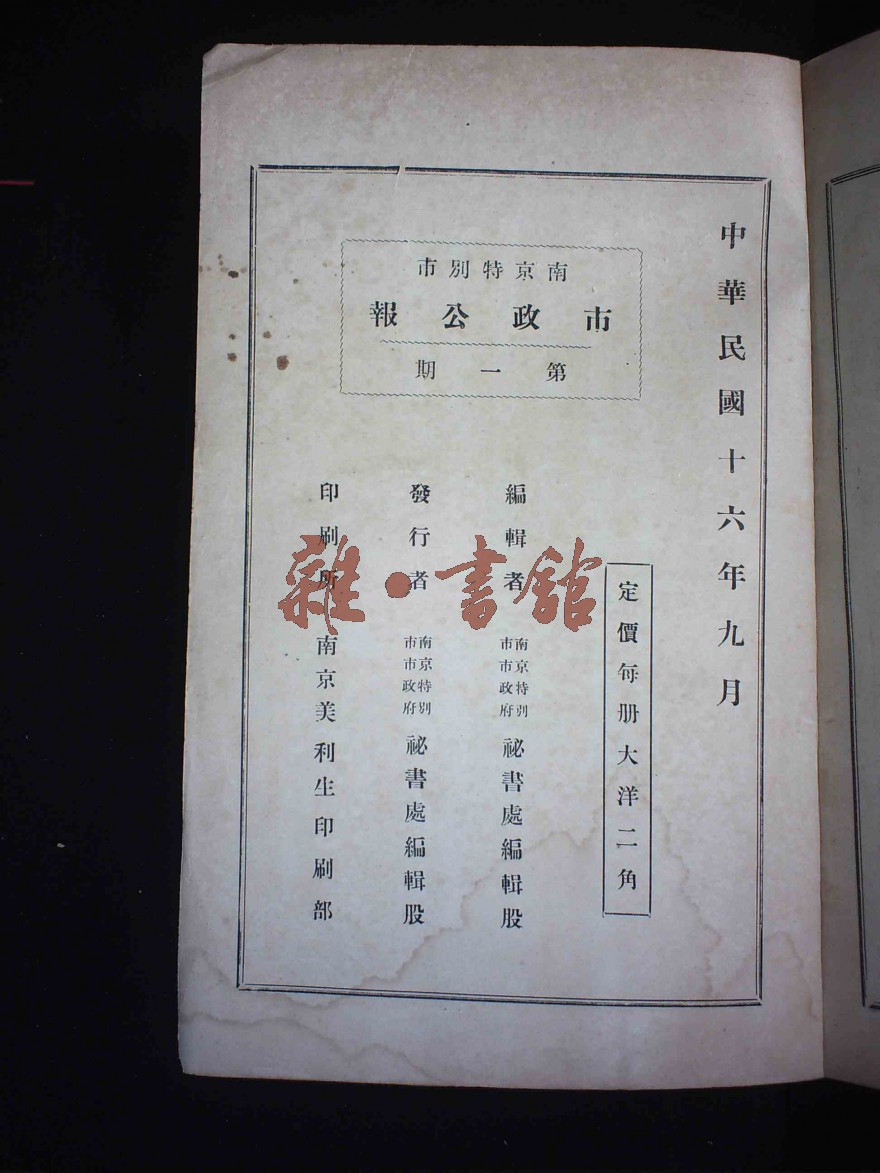 中華民國十六年九月
南京特別市
市政公報
第一期
定價每册大洋二角
編輯者 南京特別市市政府 祕書處編輯股
發行者 南京特別市市政府 祕書處編輯股
印刷所 南京美利生印刷部
雜·書館